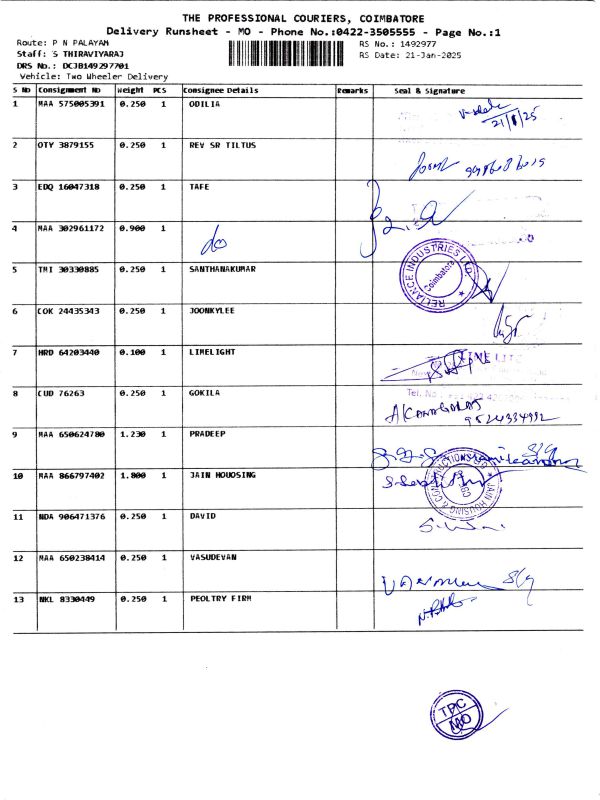 THE PROFESSIONAL COURIERS, COIMBATORE
Delivery Runsheet - MO - Phone No.:0422-3505555 - Page No.:1
Route: P N PALAYAM
RS No.: 1492977
Staff: S THIRAVIYARAJ
RS Date: 21-Jan-2025
DRS No.: DCJB149297701
Vehicle: Two Wheeler Delivery
S No Consignment No Weight PCS Consignee Details Remarks Seal & Signature
1 MAA 575005391 0.250 1 ODILIA
21/1/25
2 OTY 3879155 0.250 1 REV SR TILTUS
3 EDQ 16047318 0.250 1 TAFE
4 MAA 302961172 0.900 1 do
RELIANCE INDUSTRIES LTD. Coimbatore
5 TMI 30330885 0.250 1 SANTHANAKUMAR
6 COK 24435343 0.250 1 JOONKYLEE
7 HRD 64203440 0.100 1 LIMELIGHT
Tel. No
8 CUD 76263 0.250 1 GOKILA
9524334992
9 MAA 650624780 1.230 1 PRADEEP
10 MAA 866797402 1.800 1 JAIN HOUOSING
JAIN HOUSING & CONSTRUCTIONS
11 NDA 906471376 0.250 1 DAVID
12 MAA 650238414 0.250 1 VASUDEVAN
13 NKL 8330449 0.250 1 PEOLTRY FIRM
TPC
MO